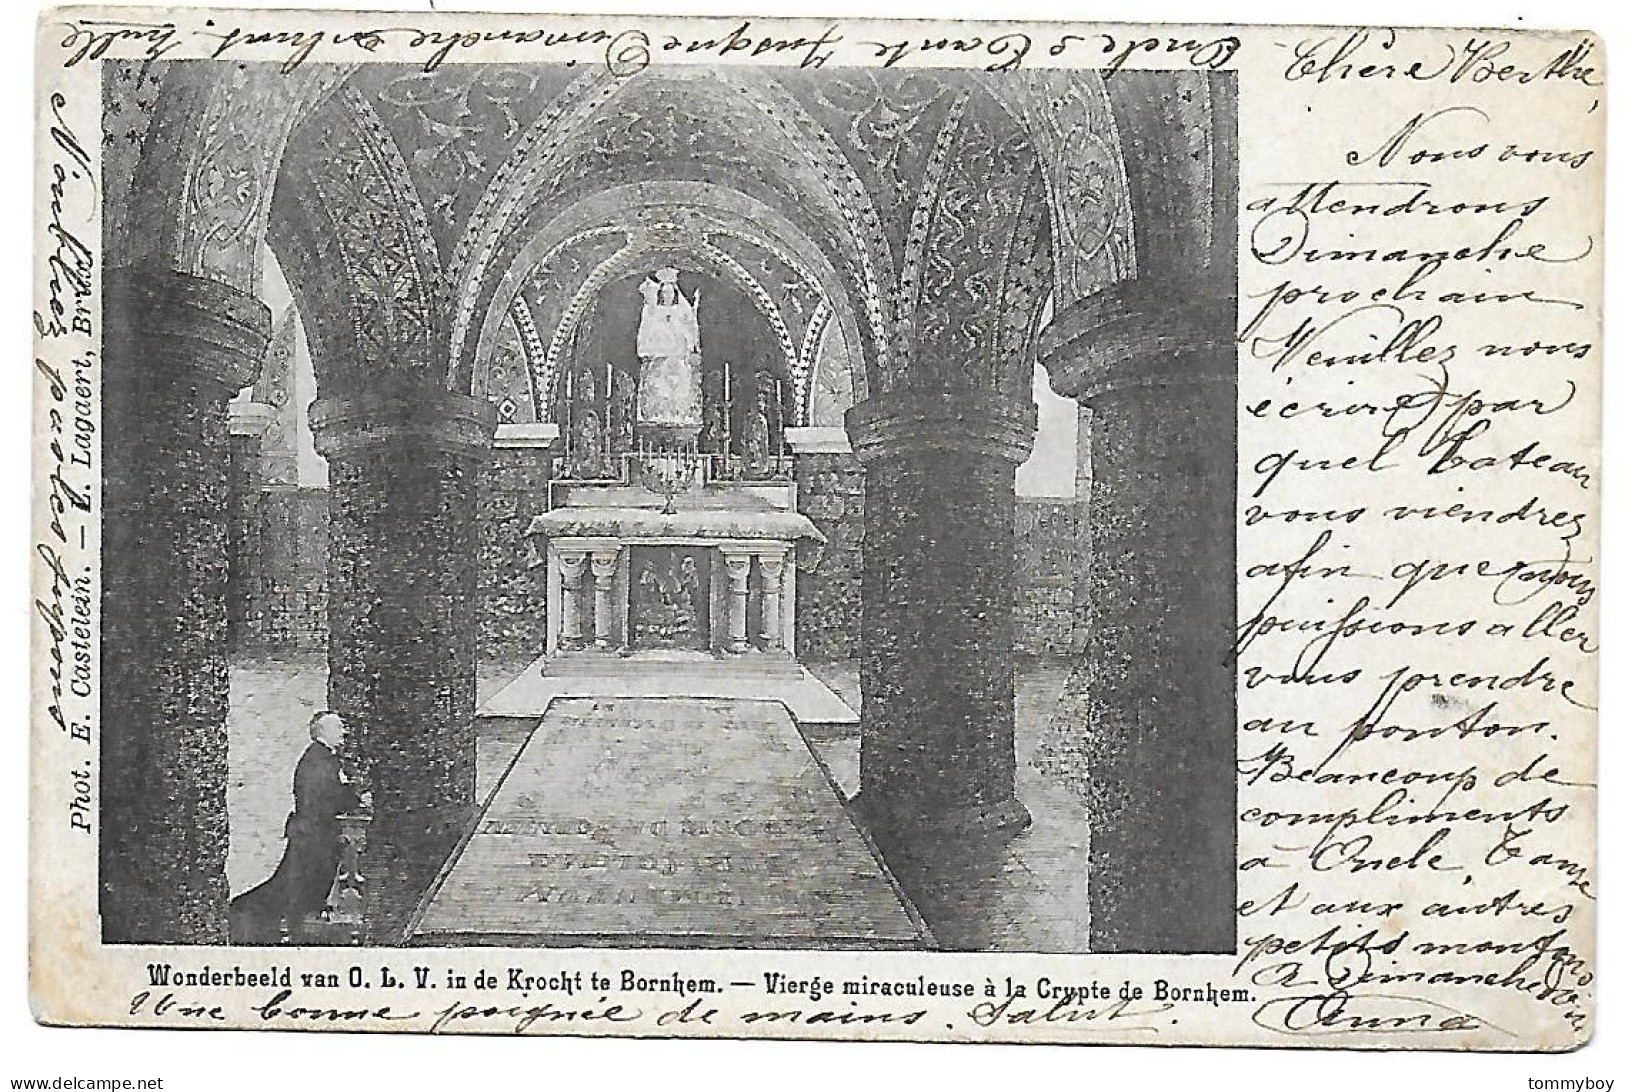 Chère Berthe,
Nous vous
attendrons
Dimanche
prochain
Veuillez nous
écrire par
quel bateau
vous viendrez
afin que nous
puissions aller
vous prendre
au ponton.
Beaucoup de
compliments
à Oncle, Tante
et aux autres
petits
A Dimanche
Anna
Une bonne poignée de mains. Salut.
N'oubliez pas les jupons
Oncle & Tante Jusque Dimanche
Phot. E. Castelein. — L. Lagaert, Brux.
Wonderbeeld van O. L. V. in de Krocht te Bornhem. — Vierge miraculeuse à la Crypte de Bornhem.
tommyboy